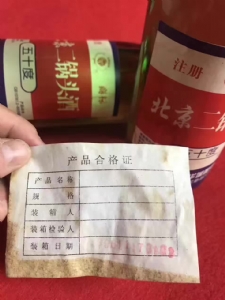 五十度
二锅头酒
商标
注册
北京二锅
五十度
产品合格证
产品名称
规格
装箱人
装箱检验人
装箱日期